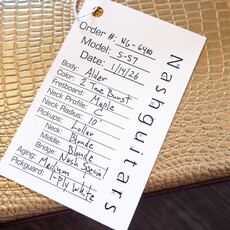 Order #: NG-6400
Model: S-57
Date: 1/14/26
Body: Alder
Color: 2 Tone Burst
Fretboard: Maple
Neck Profile: C
Neck Radius: 10"
Pickups: Lollar
Neck: Blonde
Middle: Blonde
Bridge: Nash Special
Aging: Medium
Pickguard: 1-Ply White
Nashguitars